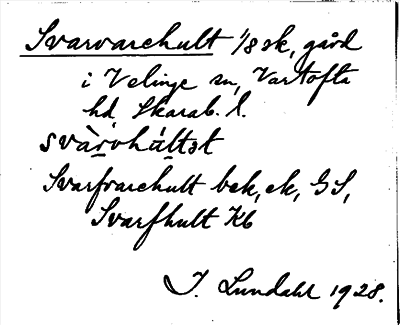 Svarvarehult 1/8 sk, gård
i Velinge sn, Vartofta
hd, Skarab. l.
svàrvhúltət
Svarfvarehult bek, ek, GS,
Svarfhult Kb
I. Lundahl 1928.